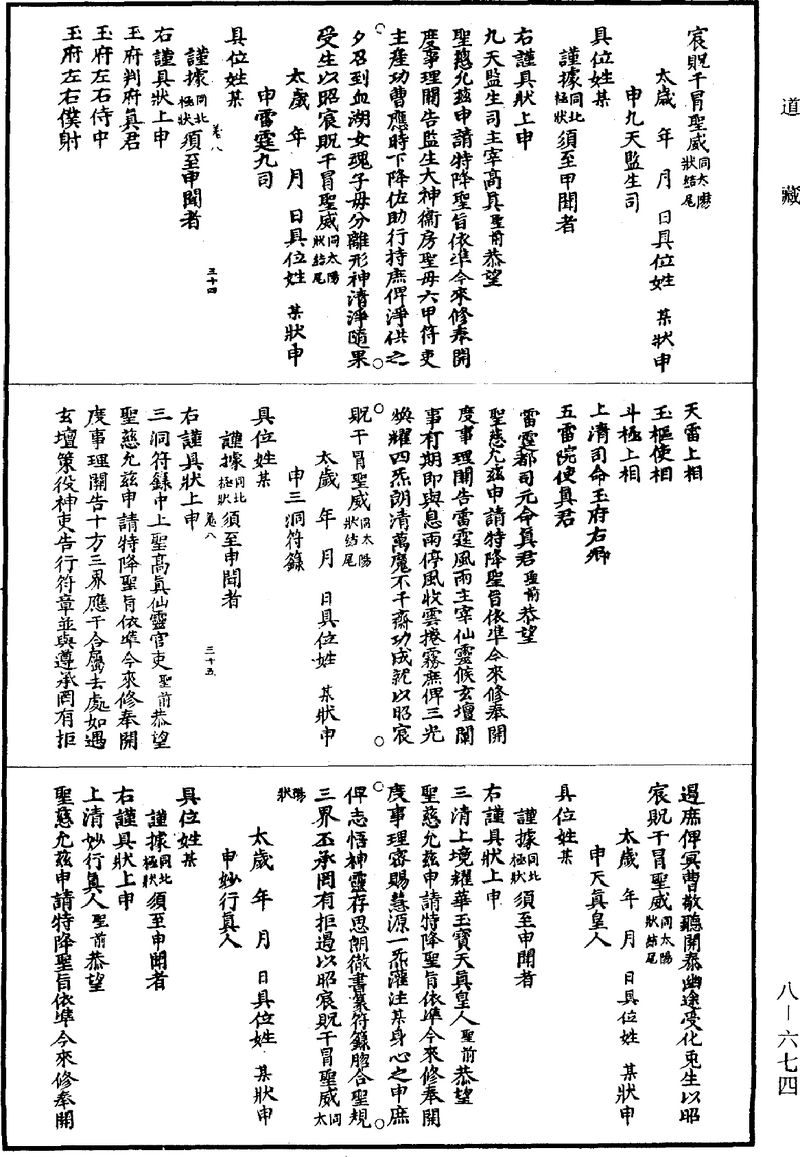 道藏
宸貺干冒聖威同太陽狀結尾
太歲 年 月 日具位姓 某狀申
申九天監生司
具位姓某
謹據同北極狀須至申聞者
右謹具狀上申
九天監生司主宰高真聖前恭望
聖慈允茲申請特降聖旨依準今來修奉開
度事理關告監生大神衛房聖母六甲符吏
主產功曹應時下降佐助行持庶俾淨供之
夕召到血湖女魂子母分離形神清淨隨果
受生以昭宸貺干冒聖威同太陽狀結尾
太歲 年 月 日具位姓 某狀申
申雷霆九司
具位姓某
卷八 三十四
謹據同北極狀須至申聞者
右謹具狀上申
玉府判府真君
玉府左右侍中
玉府左右僕射
天雷上相
玉樞使相
斗極上相
上清司命玉府右卿
五雷院使真君
雷霆都司元命真君聖前恭望
聖慈允茲申請特降聖旨依準今來修奉開
度事理開告雷霆風雨主宰仙靈候玄壇闡
事有期即與息雨停風收雲捲霧庶俾三光
煥耀四炁朗清萬魔不干齋功成就以昭宸
貺干冒聖威同太陽狀結尾
太歲 年 月 日具位姓 某狀申
申三洞符籙
具位姓某
謹據同北極狀須至申聞者
卷八 三十五
右謹具狀上申
三洞符籙中上聖高真仙靈官吏聖前恭望
聖慈允茲申請特降聖旨依準今來修奉開
度事理開告十方三界應干合屬去處如遇
玄壇策役神吏告行符章並與遵承罔有拒
遏庶俾冥曹敬聽開泰幽途受化更生以昭
宸貺干冒聖威同太陽狀結尾
太歲 年 月 日具位姓 某狀申
申天真皇人
具位姓某
謹據同北極狀須至申聞者
右謹具狀上申
三清上境耀華玉寶天真皇人聖前恭望
聖慈允茲申請特降聖旨依準今來修奉開
度事理密賜慧源一炁灌注某身心之中庶
俾志悟神靈存思朗徹書篆符籙脗合聖規
三界丕承罔有拒遏以昭宸貺干冒聖威同太
陽狀
太歲 年 月 日具位姓 某狀申
申妙行真人
具位姓某
謹據同北極狀須至申聞者
右謹具狀上申
上清妙行真人聖前恭望
聖慈允茲申請特降聖旨依準今來修奉開
八－六七四